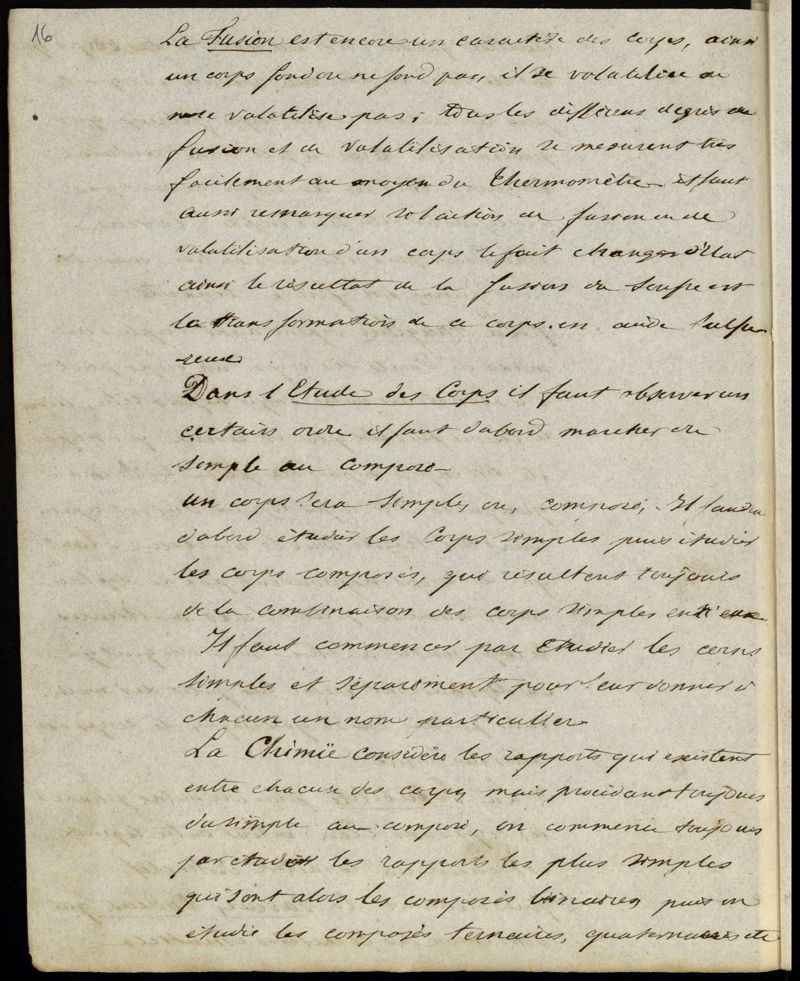 16
La Fusion est encore un caractère des corps, ainsi
un corps fond ou ne fond pas, il se volatilise ou
ne se volatilise pas; tous les différens degrés de
fusion et de volatilisation se mesurent très
facilement au moyen du Thermomètre il faut
aussi remarquer
volatilisation d'un corps le fait changer d'Etat
ainsi le résultat de la fusion du Soufre est
la transformation de ce corps en acide Sulfu-
reux
Dans l'Etude des Corps il faut observer un
certain ordre il faut d'abord marcher du
simple au composé
un corps sera simple, ou, composé; Il faudra
d'abord étudier les Corps simples puis étudier
les corps composés, qui résultent toujours
de la combinaison des corps simples entr'eux
Il faut commencer par étudier les corps
simples et séparément pour leur donner à
chacun un nom particulier
La Chimie considère les rapports qui existent
entre chacun des corps, mais procédant toujours
du simple au composé, on commence toujours
par étudier les rapports les plus simples
qui sont alors les composés binaires, puis on
étudie les composés ternaires, quaternaires etc